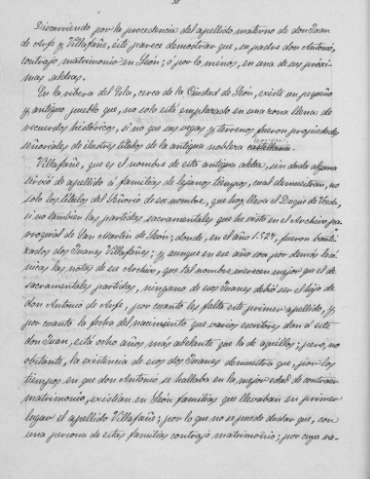 Discurriendo por la procedencia del apellido materno de don Juan
de Arfe y Villafañe, éste parece demostrar que, su padre don Antonio,
contrajo matrimonio en León; ó por lo menos, en una de sus próxi-
mas aldeas.
En la ribera del Esla, cerca de la Ciudad de León, existe un pequeño
y antiguo pueblo que, no solo está emplazado en una zona llena de
recuerdos históricos, si no que sus vegas y terrenos fueron propiedades
señoriales de ilustres títulos de la antigua nobleza castellana.
Villafañe, que es el nombre de esta antigua aldea, sin duda alguna
sirvió de apellido á familias de lejanos tiempos, cual demuestran, no
solo los títulos del Señorio de su nombre, que hoy lleva el Duque de
si no tambien las partidas sacramentales que he visto en el Archivo pa-
rroquial de San Martin de León; donde, en el año 1524, fueron bauti-
zados dos Juanes Villafañes; y aunque en ese año son por demás
las notas de su Archivo, que tal nombre merecen mejor que el de
sacramentales partidas, ninguno de esos Juanes debió ser el hijo de
don Antonio de Arfe, por cuanto les falta este primer apellido, y,
por cuanto la fecha del nacimiento que varios escritores dan á este
don Juan, está ocho años más adelante que la de aquéllos; pero, no
obstante, la existencia de esos dos Juanes demuestra que, por los
tiempos en que don Antonio se hallaba en la mejor edad de contraer
matrimonio, existian en León familias que llevaban en primer
lugar el apellido Villafañe; por lo que no se puede dudar que, con
una persona de estas familias contrajo matrimonio; por cuya ra-